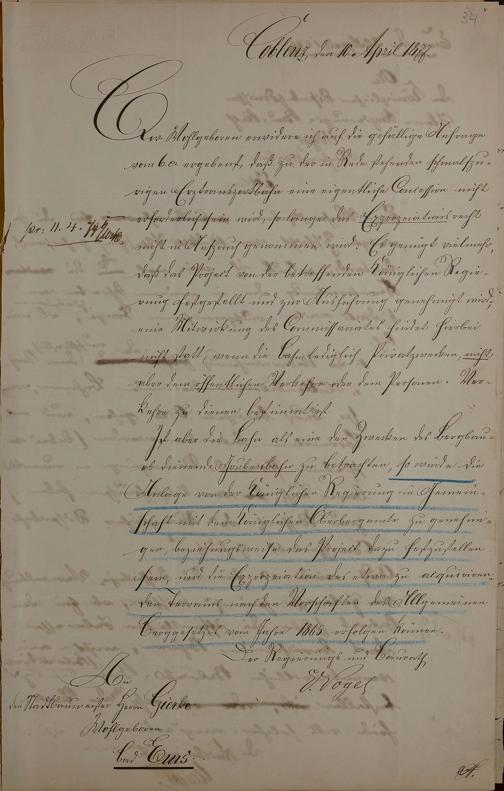 34
Coblenz, den 10. April 1877.
Euer Wohlgeboren erwidere ich auf die gefällige Anfrage
vom 6. c. ergebenst, daß zu der in Rede stehenden schmalspu-
rigen Erztransportbahn eine eigentliche Concession nicht
erforderlich sein wird, solange das Expropriationsrecht
pr. 11. 4. 77
nicht in Anspruch genommen wird. Es genügt vielmehr,
daß das Project von der betreffenden Königlichen Regie-
rung festgestellt und zur Ausführung genehmigt wird;
eine Mitwirkung des Commissariates findet hierbei
nicht statt, wenn die Bahn lediglich Privatzwecken, nicht
aber dem öffentlichen Verkehre oder dem Personen-Ver-
kehre zu dienen bestimmt ist.
Ist aber die Bahn als eine den Zwecken des Bergbau-
es dienende Grubenbahn zu betrachten, so würde die
Anlage von der Königlichen Regierung in Gemein-
schaft mit dem Königlichen Oberbergamte zu genehmi-
gen, beziehungsweise das Project dazu festzustellen
sein, und die Expropriation des etwa zu acquiriren-
den Terrains nach den Vorschriften des Allgemeinen
Berggesetzes vom Jahre 1865 erfolgen können.
Der Regierungs und Baurath,
Vogel
An
den Stadtbaumeister Herrn
Wohlgeboren
Bad Ems